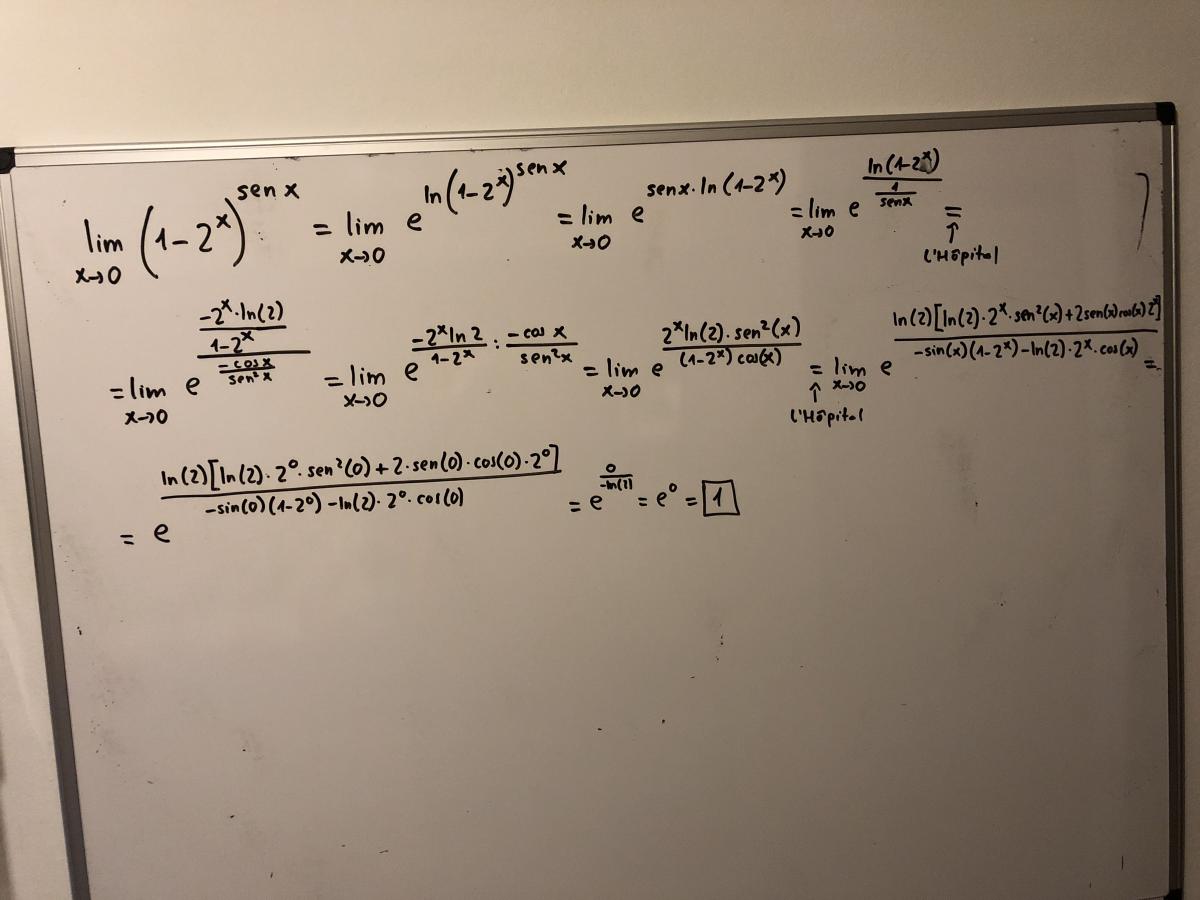 lim x→0 (1-2^x)^(sen x) = lim x→0 e^(ln(1-2^x)^(sen x)) = lim x→0 e^(senx·ln(1-2^x)) = lim x→0 e^(ln(1-2^x)/(1/senx)) = ↑ L'Hôpital
= lim x→0 e^((-2^x·ln(2)/(1-2^x))/(-cosx/sen²x)) = lim x→0 e^(-2^x ln 2/(1-2^x) : -cos x/sen²x) = lim x→0 e^(2^x ln(2)·sen²(x)/((1-2^x)cos(x))) = ↑ L'Hôpital lim x→0 e^(ln(2)[ln(2)·2^x·sen²(x)+2sen(x)cos(x)2^x]/(-sin(x)(1-2^x)-ln(2)·2^x·cos(x))) =
= e^(ln(2)[ln(2)·2^0·sen²(0)+2·sen(0)·cos(0)·2^0]/(-sin(0)(1-2^0)-ln(2)·2^0·cos(0))) = e^(0/-ln(2)) = e^0 = 1